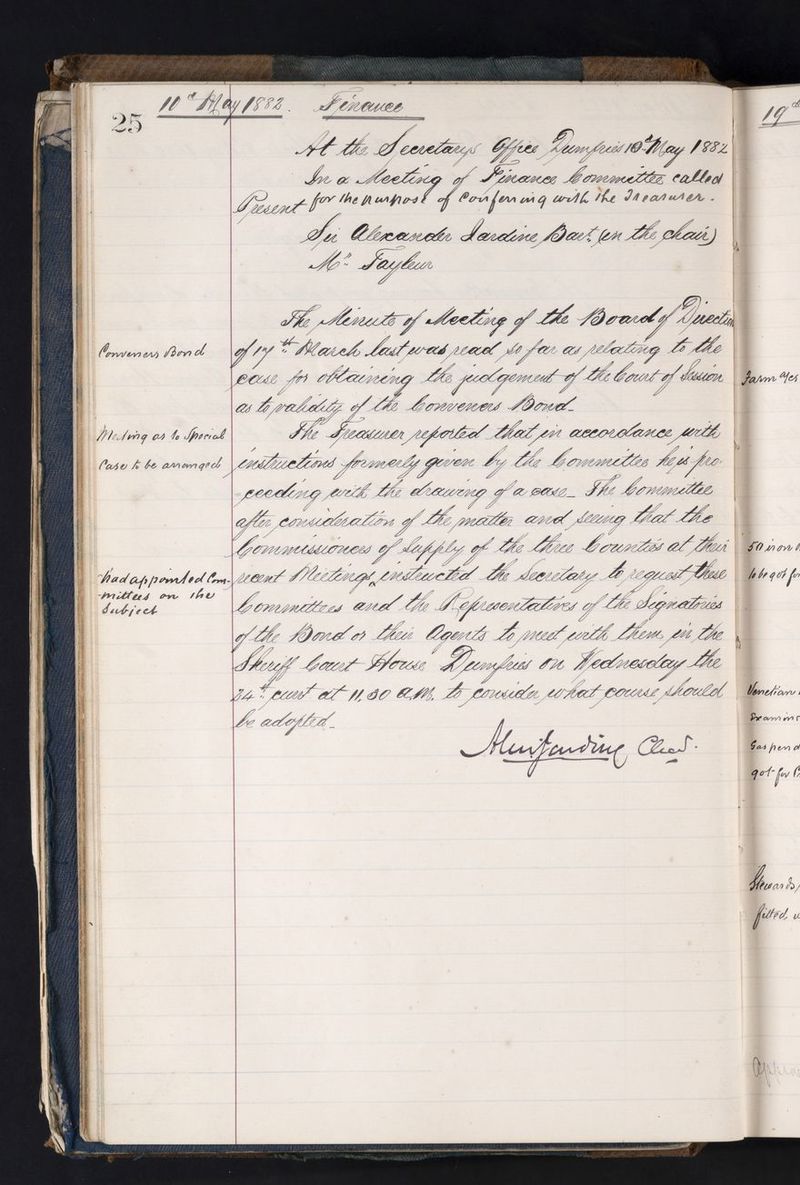 25
10th May 1882. Finance
At the Secretarys Office Dumfries 10th May 1882
In a Meeting of Finance Committee called
for the purpose of conferring with the Treasurer.
Present
Sir Alexander Jardine Bart. (in the chair)
Mr Tayleur
The Minute of Meeting of the Board of Direction
Conveners Bond
of 17th March last was read, so far as relating to the
case for obtaining the judgement of the Court of Session
as to validity of the Conveners Bond_
Meeting as to Special
Case to be arranged
The Treasurer reported that in accordance with
instructions formerly given by the Committee he is pro-
-ceeding with the drawing of a case_ The Committee
after consideration of the matter and seeing that the
Commissioners of Supply of the three Counties at their
had appointed Com-
mittees on the
Subject
recent Meetings ^ instructed the Secretary to request these
Committees and the Representatives of the Signatories
of the Bond or their Agents to meet with them in the
Sheriff Court House Dumfries on Wednesday the
24th curt at 11.30 A.M. to consider what course should
be adopted_
Alex Jardine Chn.
19th
Farm
50 iron
to be got for
Venetian
got for
Stewards
fitted